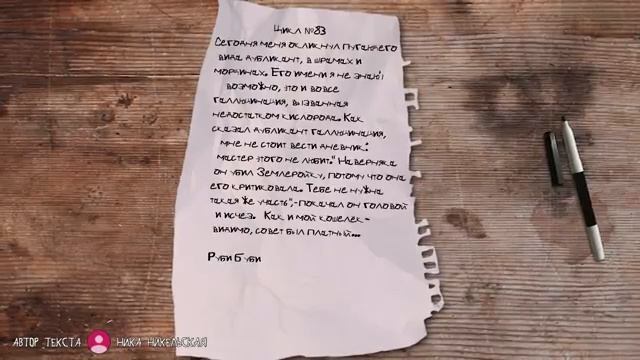 Цикл №83
Сегодня меня окликнул пугающего
вида дубликант, в шрамах и
морщинах. Его имени я не знаю!
возможно, это и вовсе
галлюцинация, вызванная
недостатком кислорода. Как
сказал дубликант галлюцинация,
мне не стоит вести дневник:
мастер этого не любит." Наверняка
он убил Землеройку, потому что она
его критиковала. Тебе не нужна
такая же участь",-покачал он головой
и исчез. Как и мой кошелек-
видимо, совет был платный...
Руби Буби
АВТОР ТЕКСТА НИКА НИКЕЛЬСКАЯ